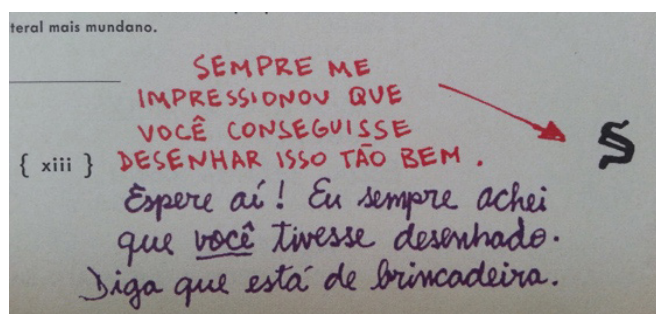 teral mais mundano.
SEMPRE ME
IMPRESSIONOU QUE
VOCÊ CONSEGUISSE
{ xiii } DESENHAR ISSO TÃO BEM.
S
Espere aí! Eu sempre achei
que você tivesse desenhado.
Diga que está de brincadeira.